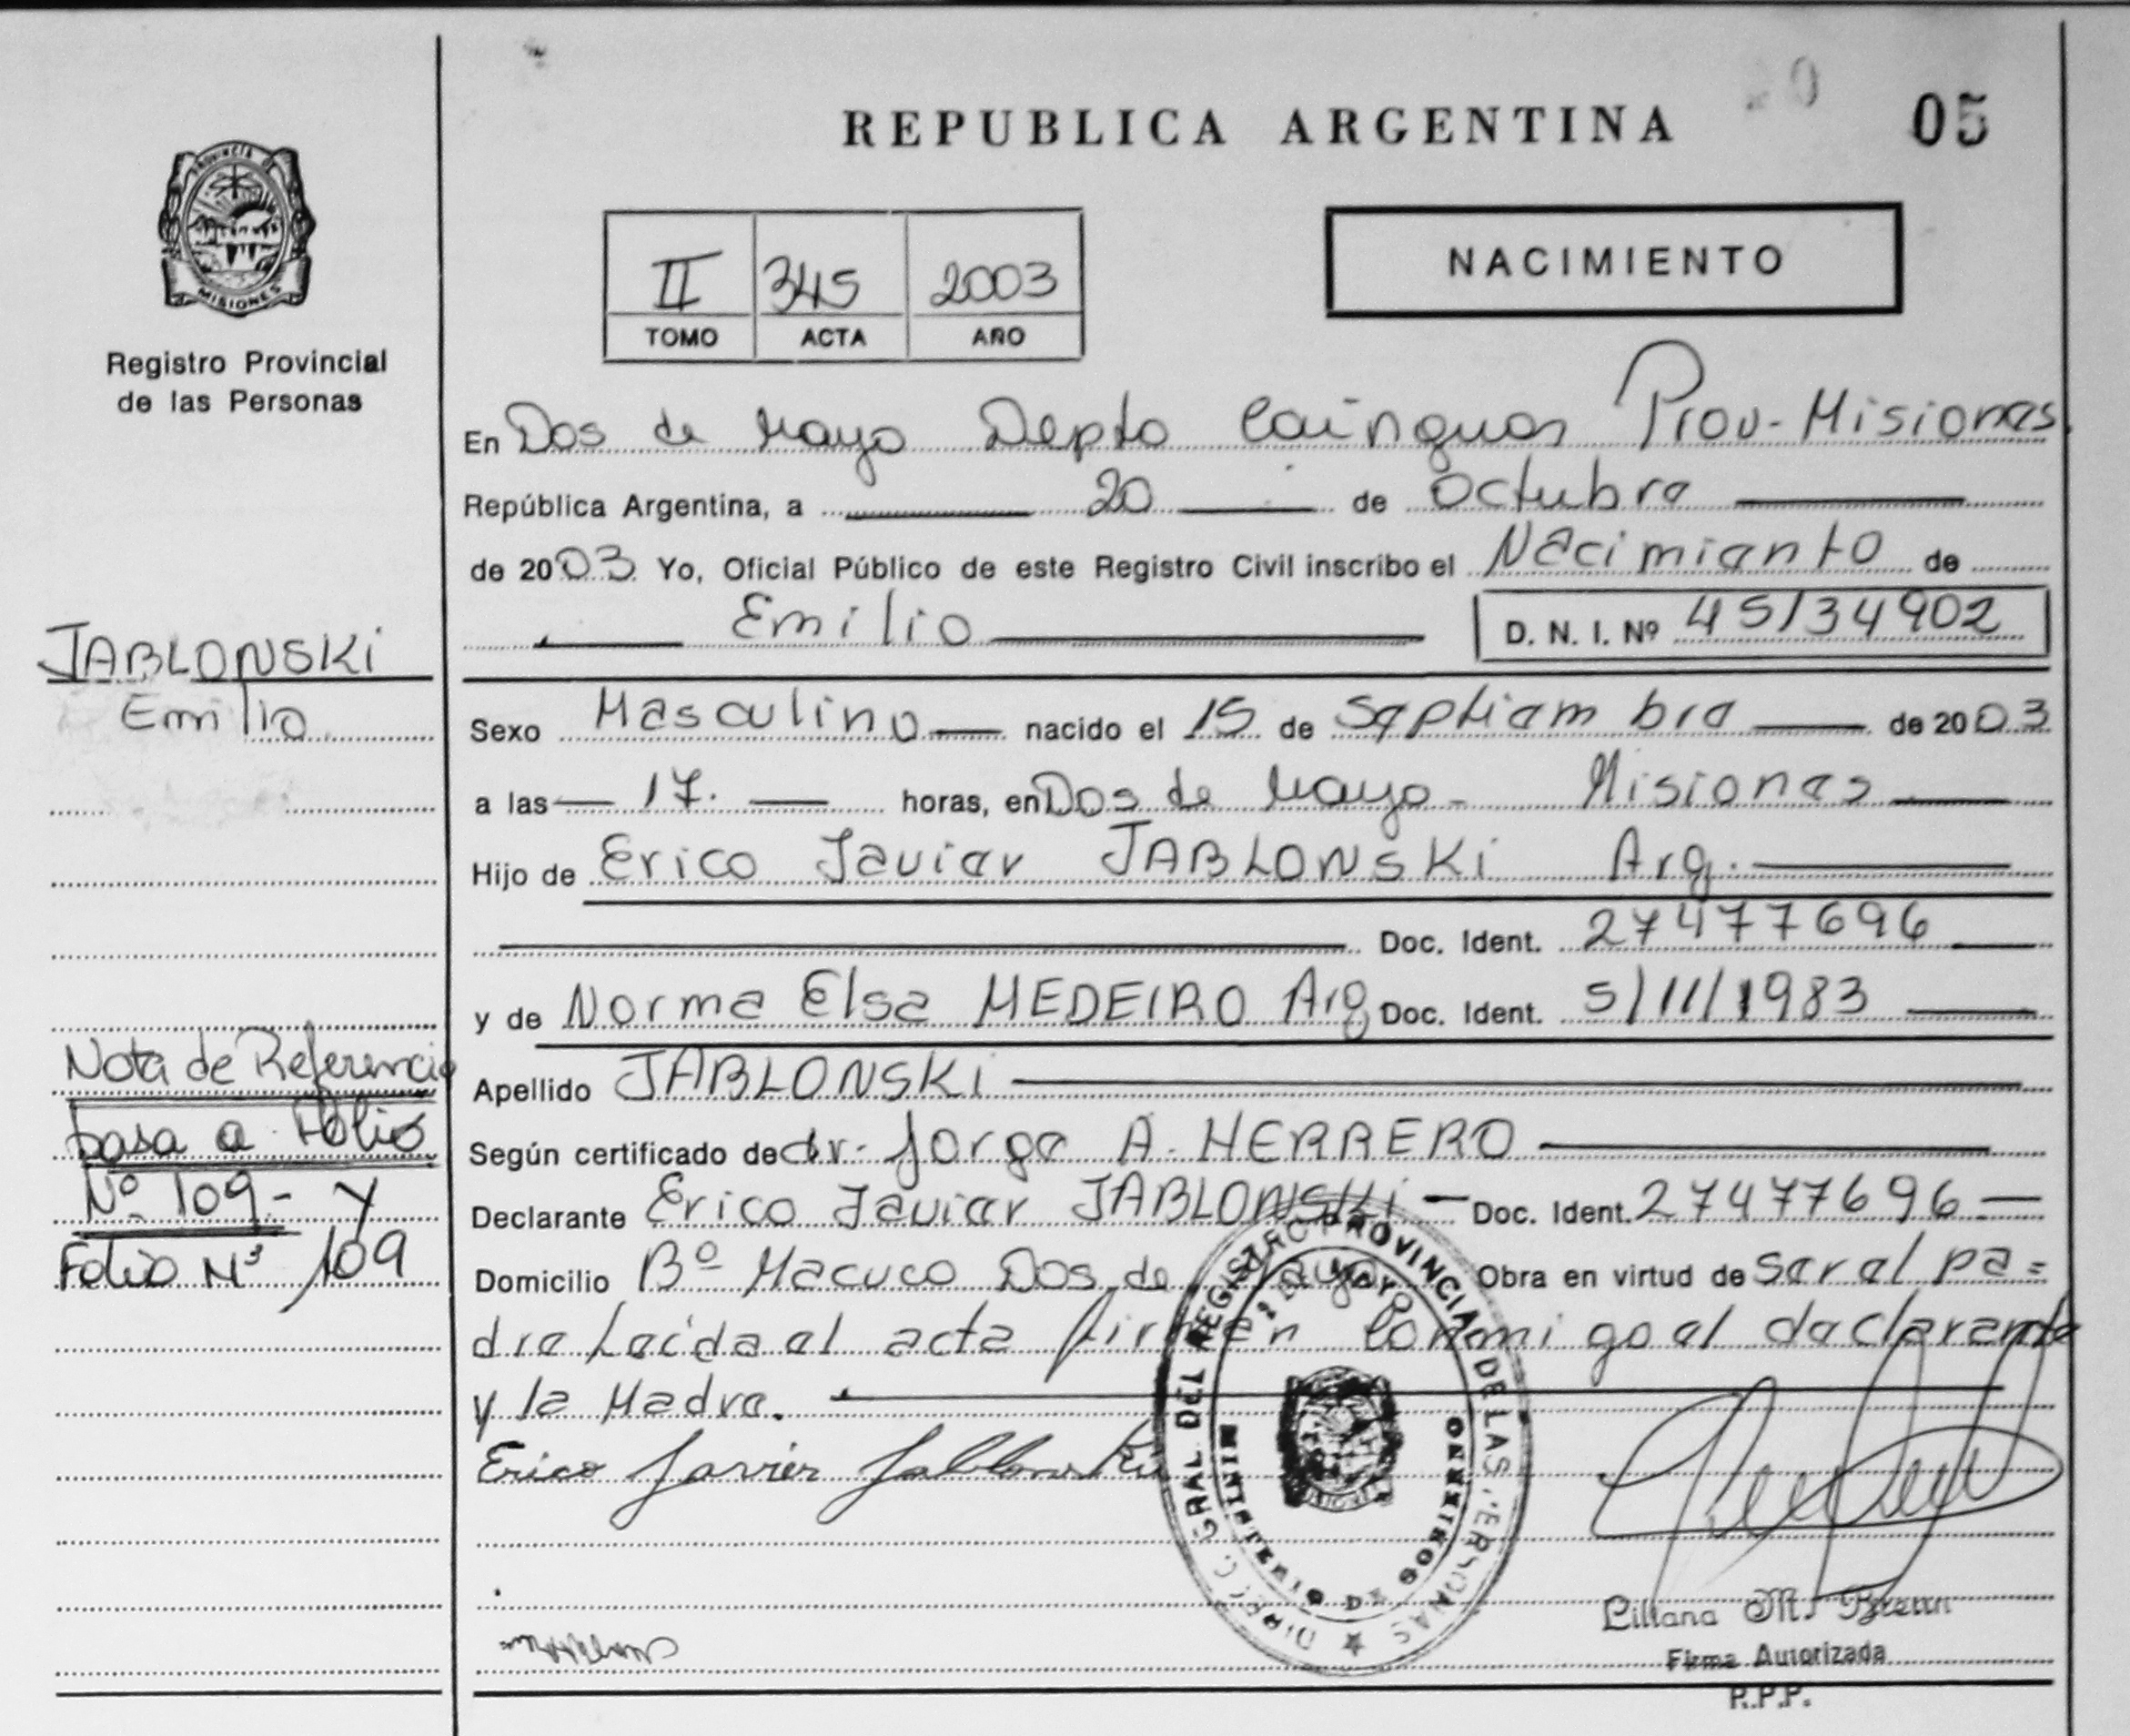 REPUBLICA ARGENTINA
05
PROVINCIA DE
MISIONES
Registro Provincial
de las Personas
II 345 2003
TOMO ACTA AÑO
NACIMIENTO
En Dos de Mayo Depto Cainguas Prov-Misiones
República Argentina, a 20 de Octubre
de 2003 Yo, Oficial Público de este Registro Civil inscribo el Nacimiento de
Emilio D. N. I. Nº 45134902
JABLONSKi
Emilio
Sexo Masculino nacido el 15 de Septiembre de 2003
a las 17. horas, en Dos de Mayo - Misiones
Hijo de Erico Javier JABLONSKi Arg.
Doc. Ident. 27477696
y de Norma Elsa MEDEIRO Arg Doc. Ident. 5/11/1983
Apellido JABLONSKi
Según certificado de dr. Jorge A. HERRERO
Declarante Erico Javier JABLONSKi - Doc. Ident. 27477696
Domicilio Bº Macuco Dos de Mayo Obra en virtud de ser el pa=
dre Leida el acta firman Conmigo el declarante
y la Madre.
Nota de Referencia
pasa a Folio
Nº 109- y
Folio Nº 109
Erico Javier Jablonski
DIRECC. GRAL. DEL REGISTRO PROVINCIAL DE LAS PERSONAS
MINISTERIO DE GOBIERNO
Liliana M.
Firma Autorizada
R.P.P.